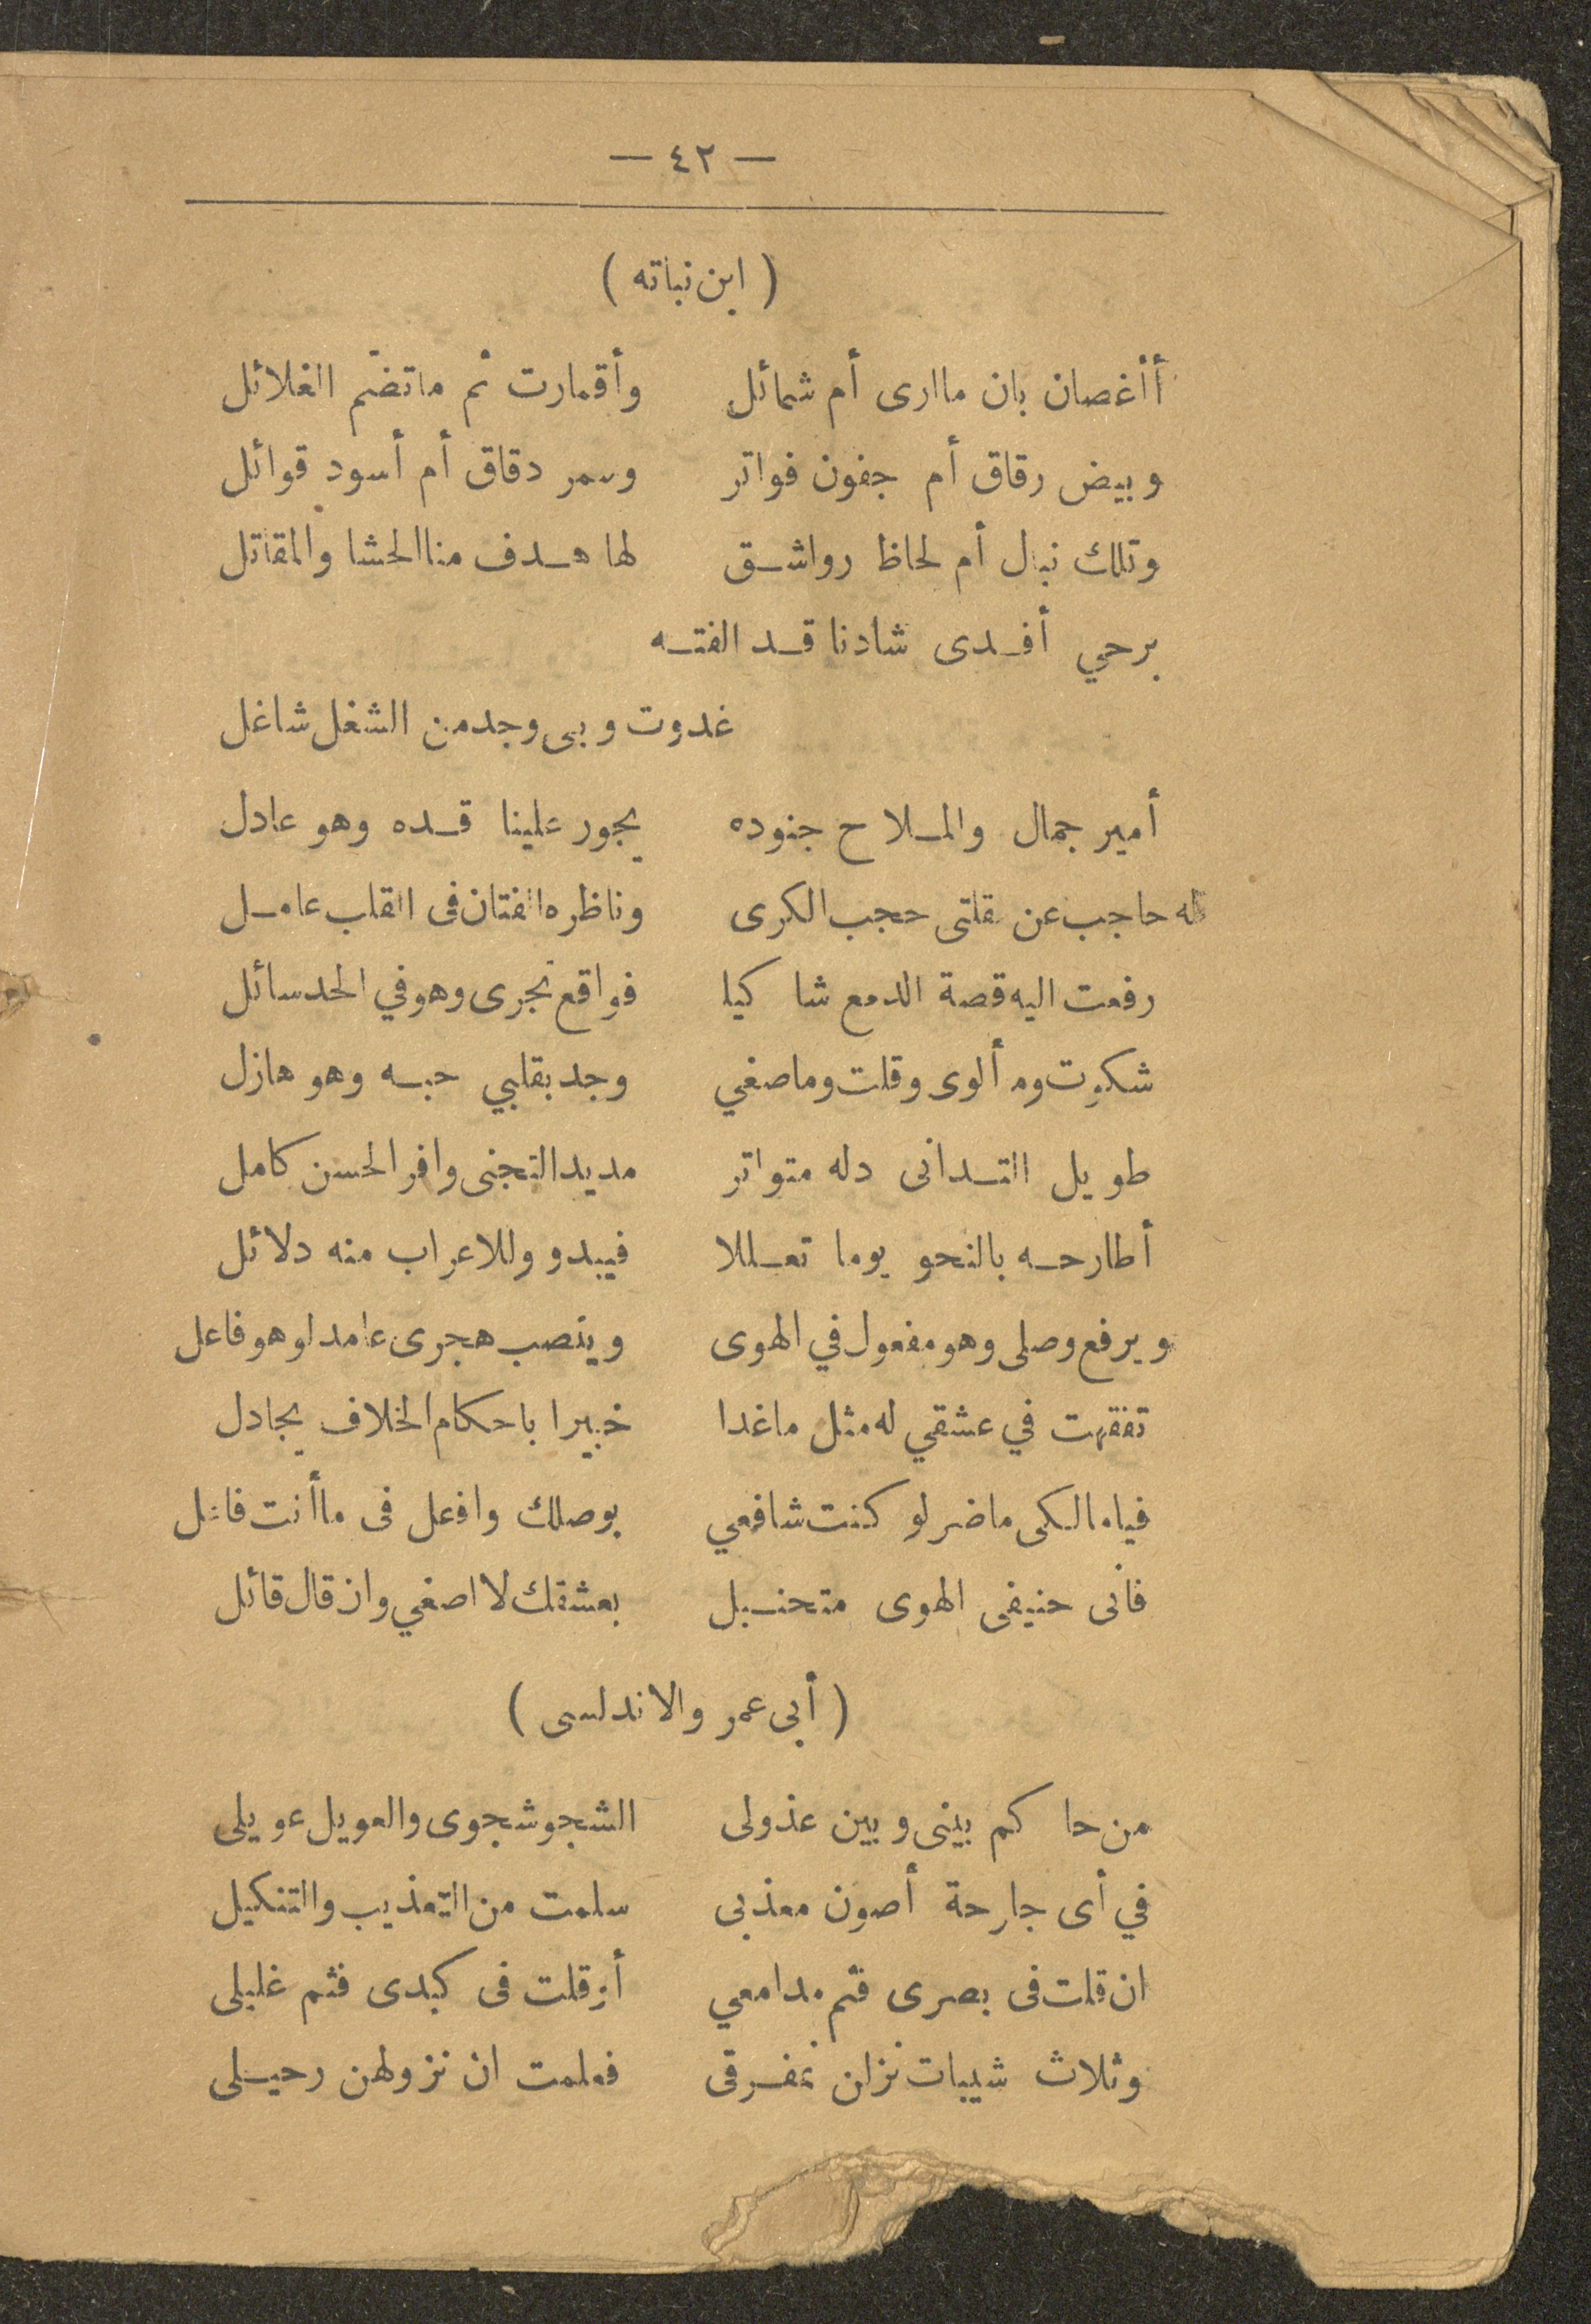 — ٤٢ —
( ابن نباته )
أأغصان بان ماارى أم شمائل وأقمارت ثم ماتضّم الغلائل
وبيض رقاق أم جفون فواتر وسمر دقاق أم أسود قوائل
وتلك نبال أم لحاظ رواشق لها هدف مناالحشا والمقاتل
برحي أفدى شادنا قد الفته
غدوت وبى وجدمن الشغل شاغل
أمير جمال والملاح جنوده يجور علينا قده وهو عادل
له حاجب عن مقلتى حجب الكرى وناظره الفتان فى القلب عامل
رفعت اليه قصة الدمع شاكيا فواقع تجرى وهو في الخد سائل
شكوت وم ألوى وقلت وماصغي وجد بقلبي حبه وهو هازل
طويل التدانى دله متواتر مديد التجنى وافر الحسن كامل
أطارحه بالنحو يوما تعللا فيبدو وللاعراب منه دلائل
ويرفع وصلى وهو مفعول في الهوى وينصب هجرى عامدا وهو فاعل
تفقهت في عشقي له مثل ماغدا خبيرا باحكام الخلاف يجادل
فيامالكى ماضر لو كنت شافعي بوصلك وافعل فى ماأنت فاعل
فانى حنيفى الهوى متحنبل بعشقك لا اصغي وان قال قائل
( أبى عمر والاندلسى )
من حاكم بينى وبين عذولى الشجوشجوى والعويل عويلى
في أى جارحة أصون معذبى سلمت من التعذيب والتنكيل
ان قلت فى بصرى فثم مدامعي أو قلت فى كبدى فثم غليلى
وثلاث شيبات نزلن بمفرقى فعلمت ان نزولهن رحيلى